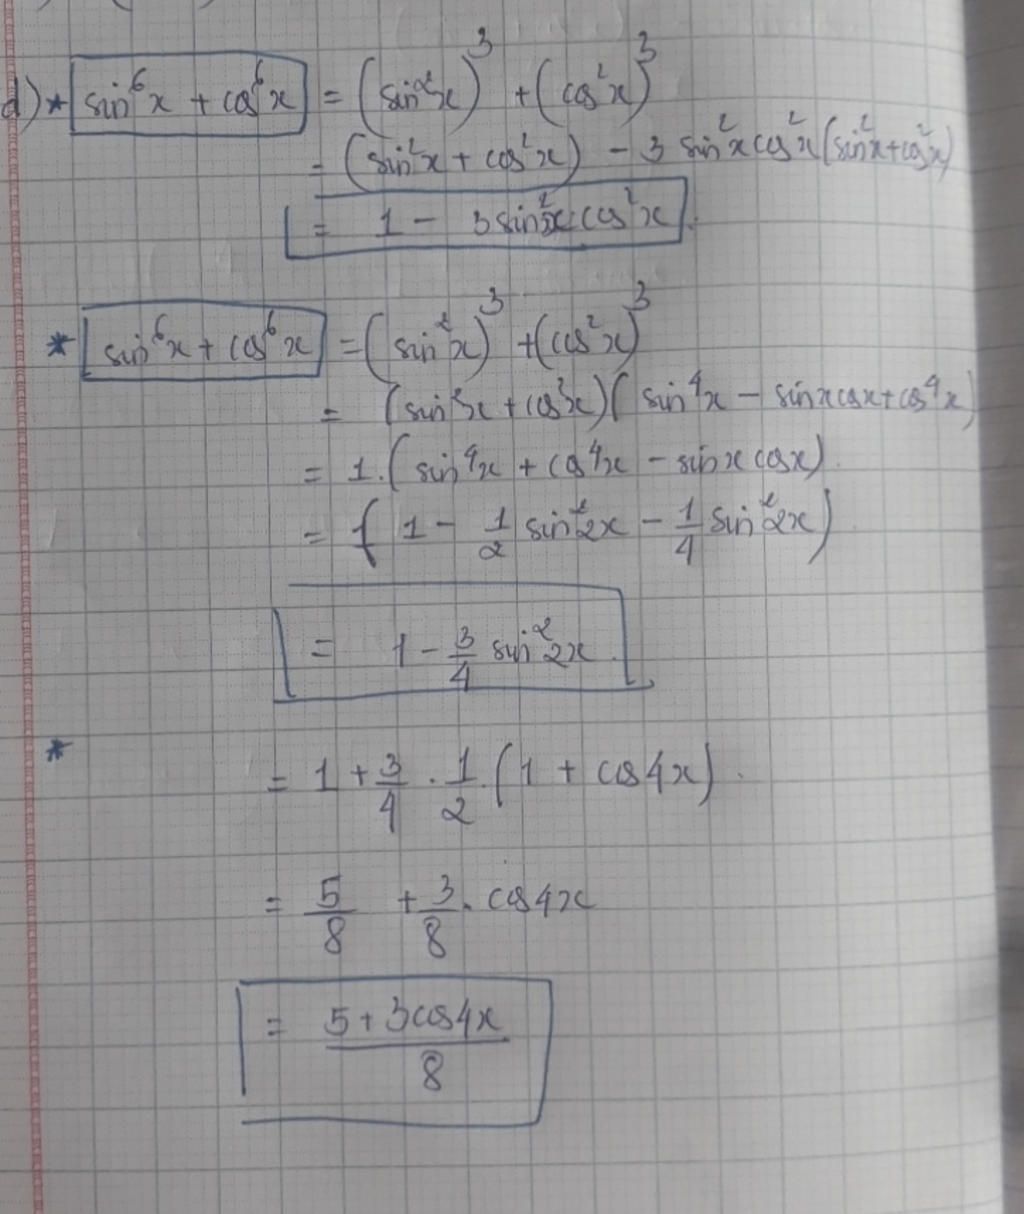 d) * sin⁶x + cos⁶x = (sin²x)³ + (cos²x)³
= (sin²x + cos²x) - 3 sin²x cos²x (sin²x + cos²x)
= 1 - 3 sin²x cos²x.
* sin⁶x + cos⁶x = (sin²x)³ + (cos²x)³
= (sin²x + cos²x)(sin⁴x - sinx cosx + cos⁴x)
= 1.(sin⁴x + cos⁴x - sinx cosx).
= (1 - 1/2 sin²2x - 1/4 sin²2x).
= 1 - 3/4 sin²2x.
*
= 1 + 3/4 . 1/2.(1 + cos4x).
= 5/8 + 3/8. cos4x
= (5 + 3cos4x)/8